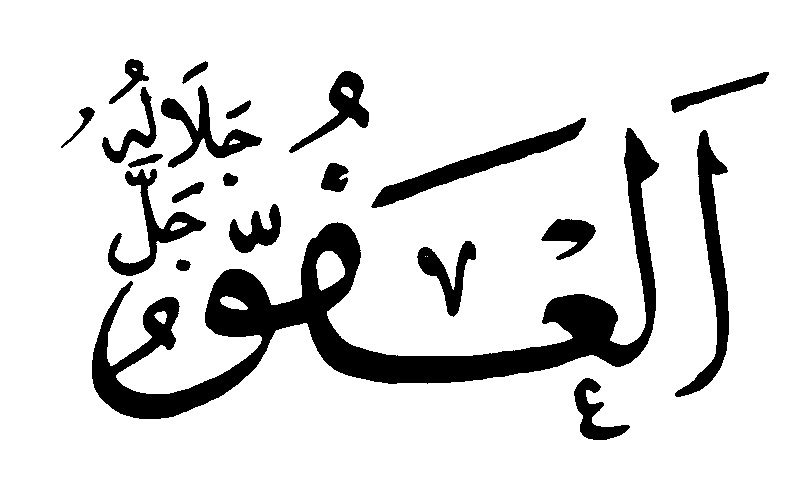 اَلْعَفُوُّ
جَلَّ جَلَالُهُ